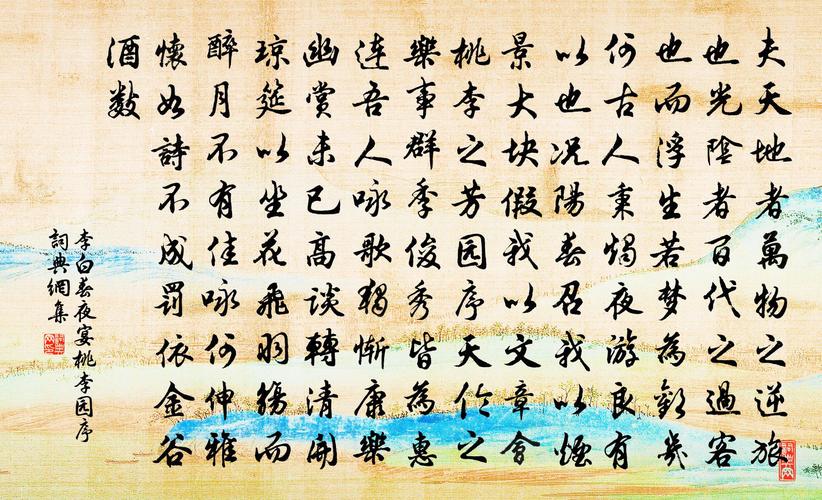 夫天地者萬物之逆旅
也光陰者百代之過客
也而浮生若梦為歡幾
何古人秉燭夜游良有
以也况陽春召我以煙
景大块假我以文章會
桃李之芳园序天伦之
樂事群季俊秀皆為惠
连吾人咏歌獨惭康樂
幽赏未已高談轉清開
琼筵以坐花飛羽觴而
醉月不有佳咏何伸雅
懷如詩不成罰依金谷
酒数
李白春夜宴桃李园序
詞典網集